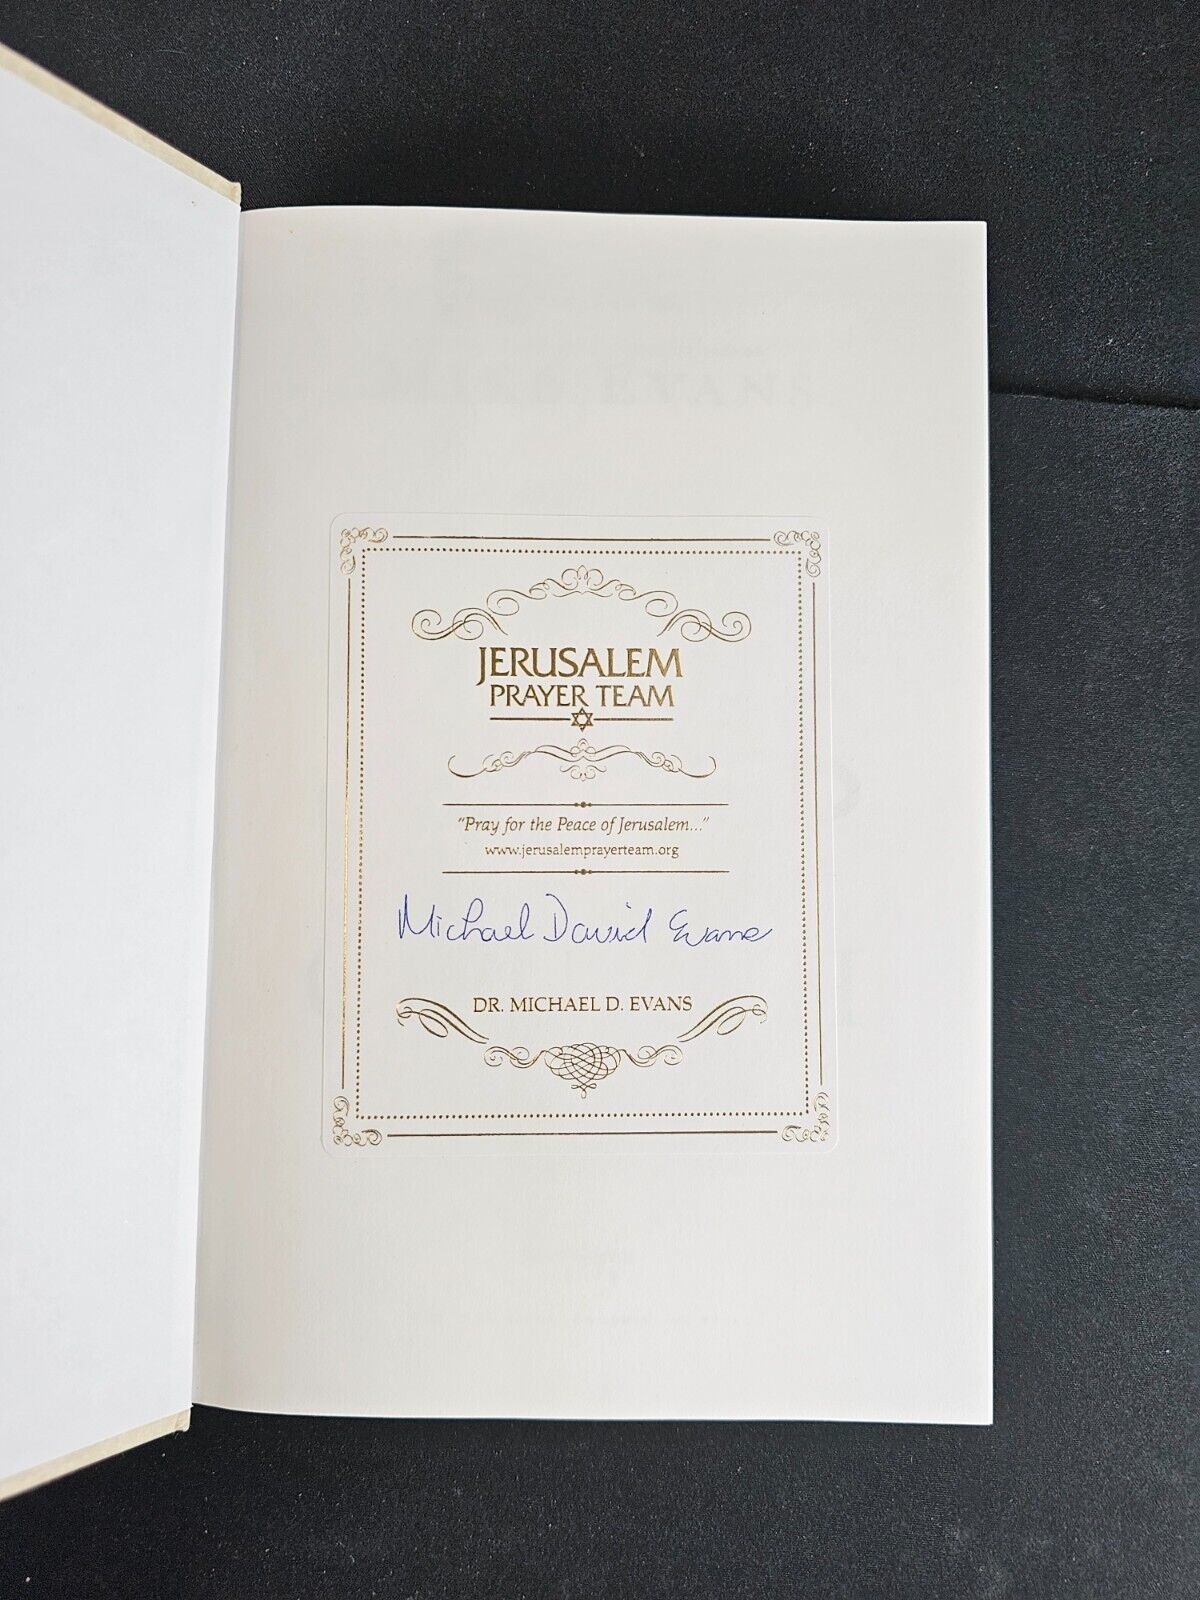 JERUSALEM
PRAYER TEAM
"Pray for the Peace of Jerusalem..."
www.jerusalemprayerteam.org
Michael David Evans
DR. MICHAEL D. EVANS